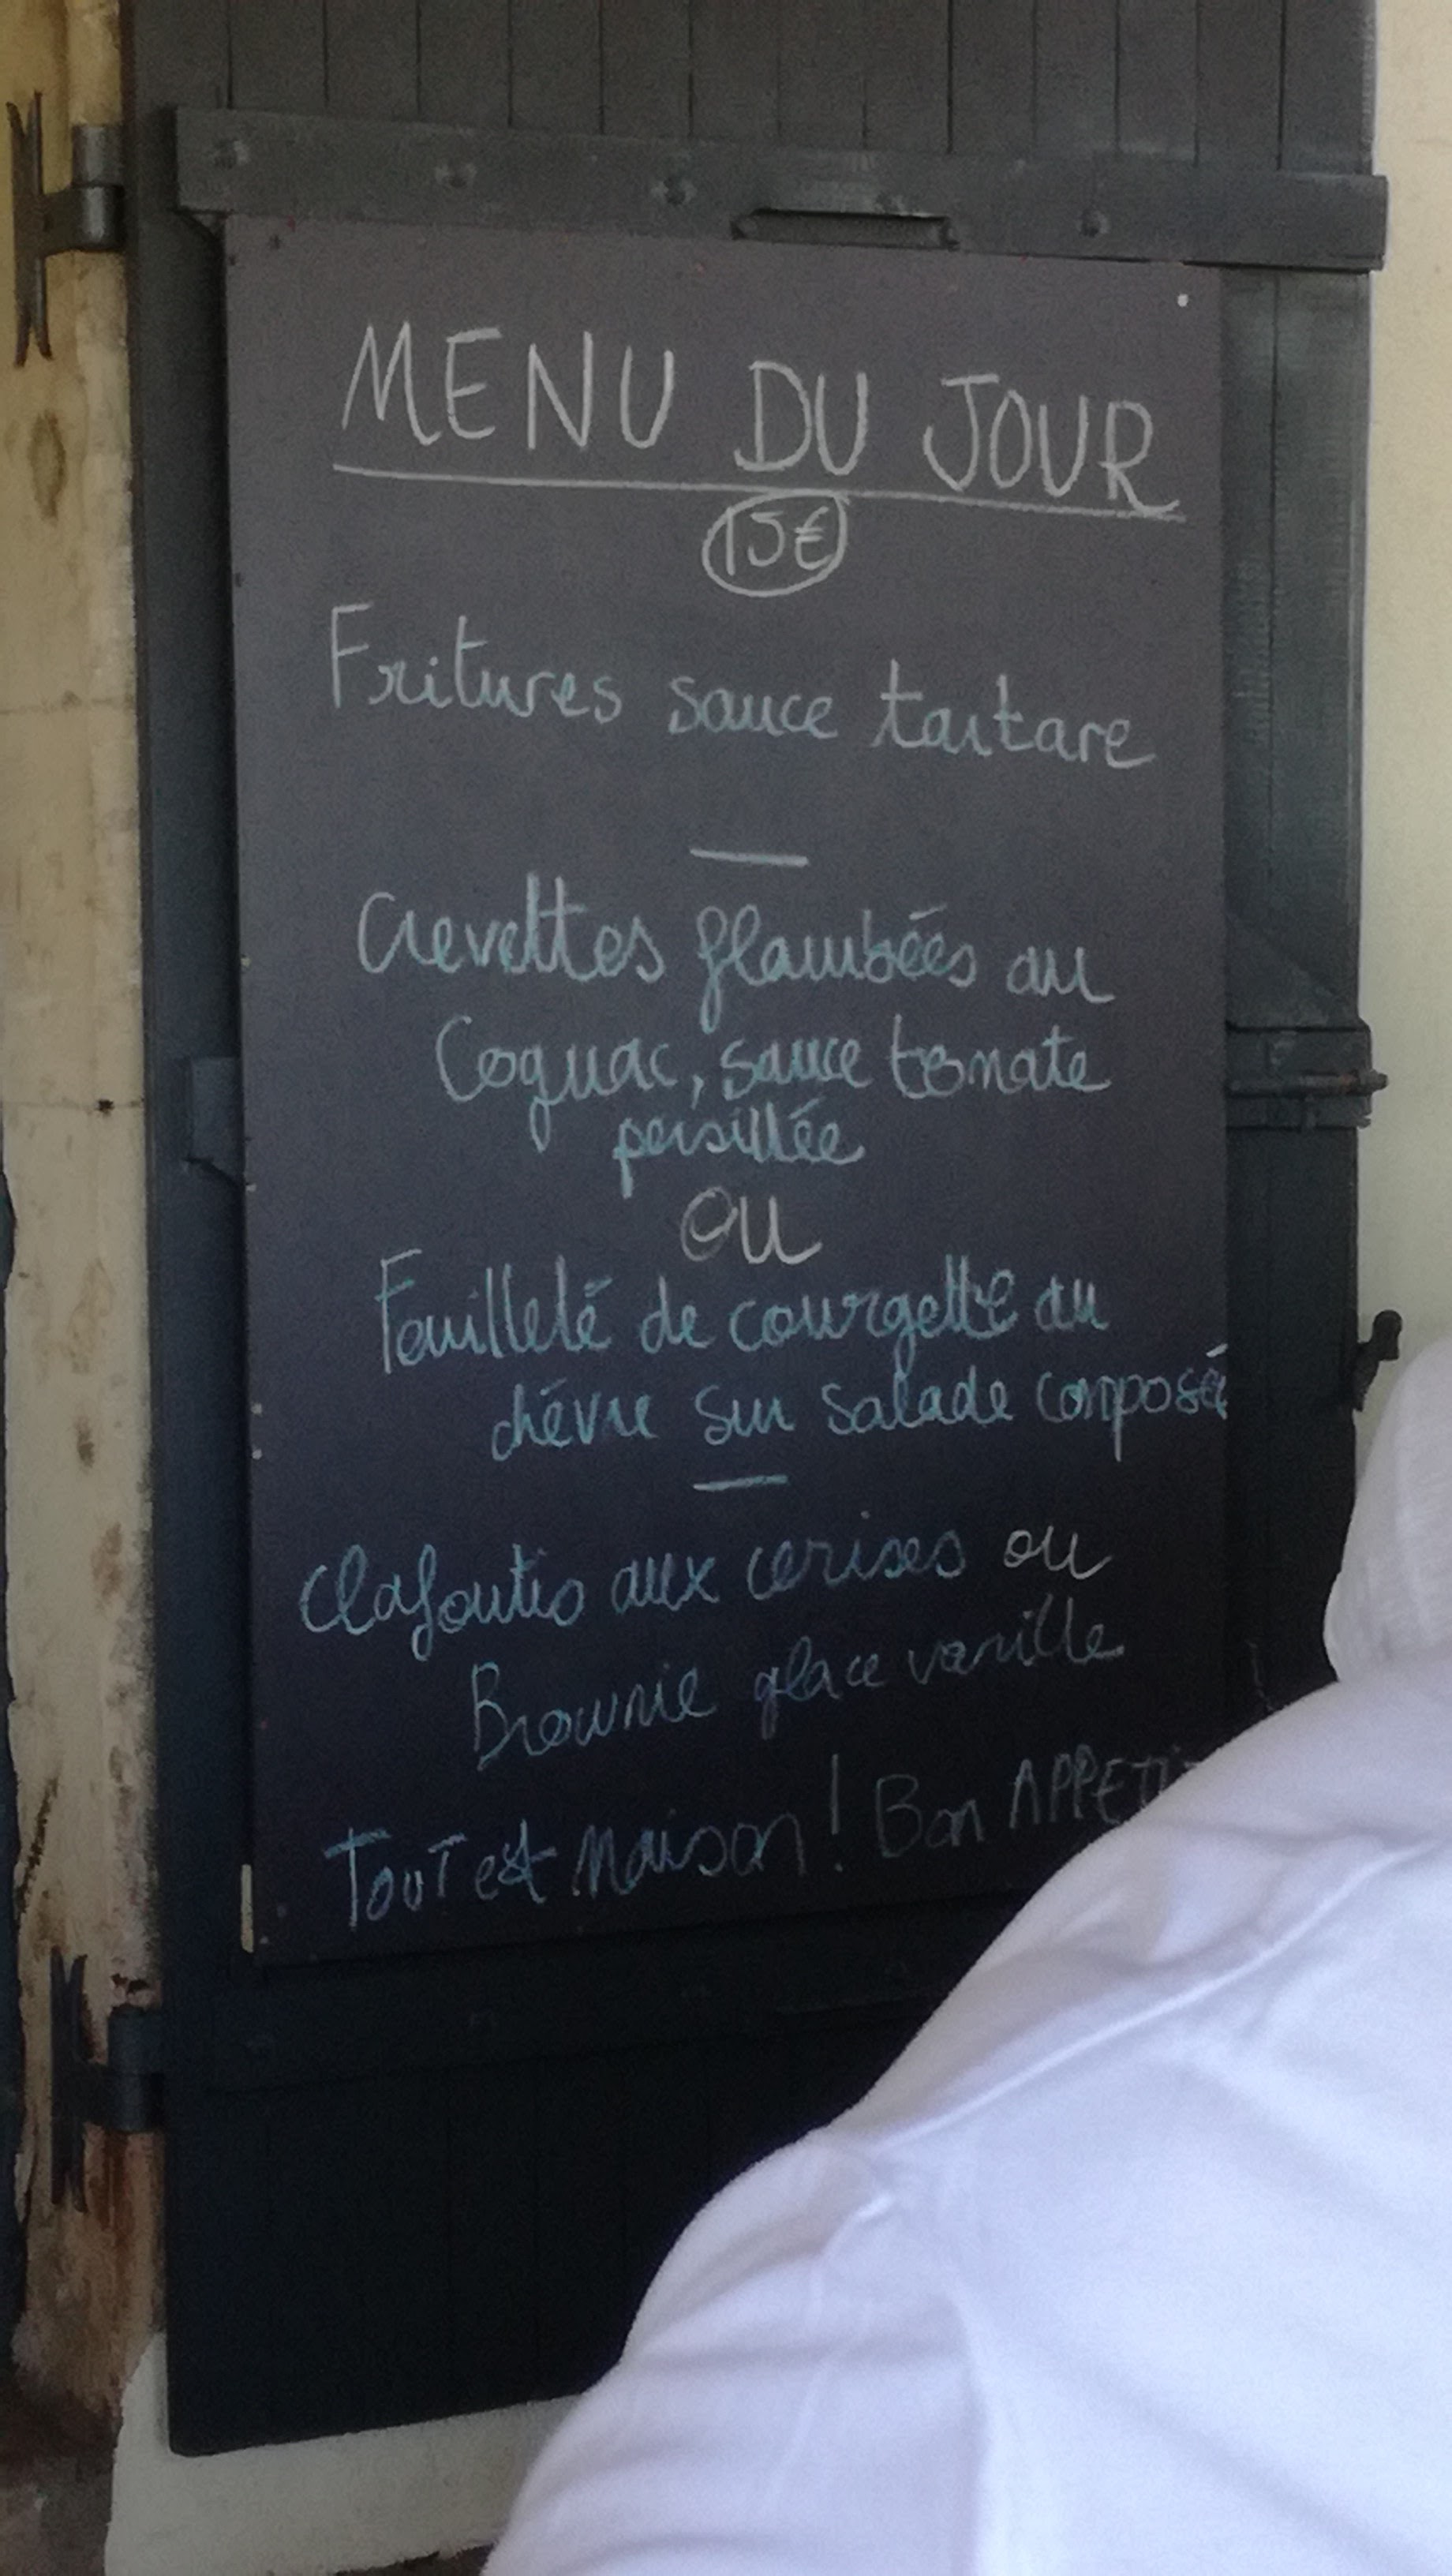 MENU DU JOUR
15€
Fritures sauce tartare
Crevettes flambées au
Cognac, sauce tomate
persillée
OU
Feuilleté de courgette au
chévre sur salade composée
Clafoutis aux cerises ou
Brownie glace vanille
Tout est Maison! Bon APPETIT